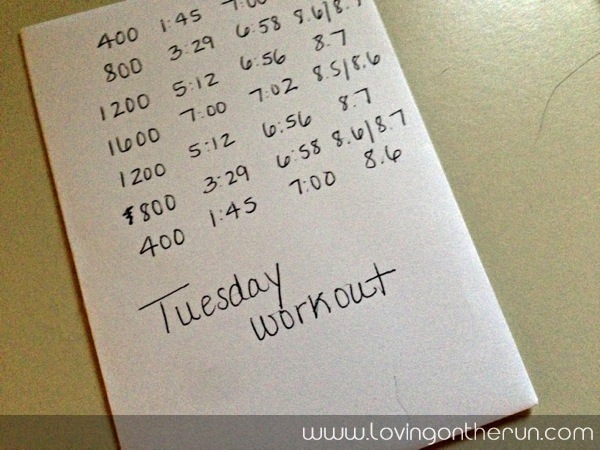 400 1:45 7:00
800 3:29 6:58 8.6/8.7
1200 5:12 6:56 8.7
1600 7:00 7:02 8.5/8.6
1200 5:12 6:56 8.7
800 3:29 6:58 8.6/8.7
400 1:45 7:00 8.6
Tuesday
workout
www.lovingontherun.com